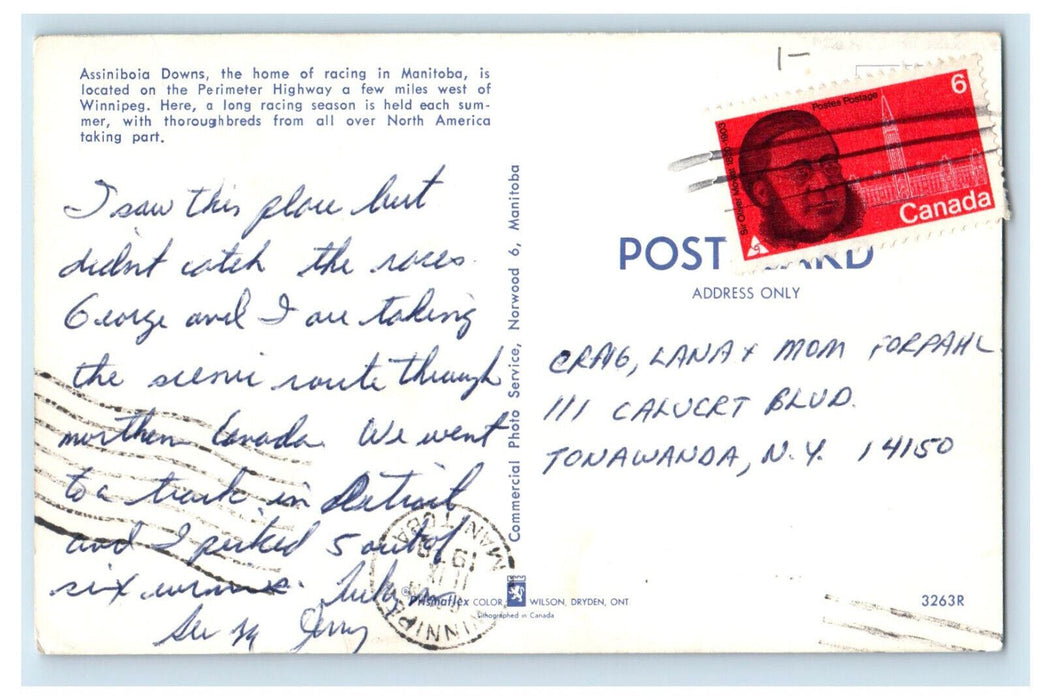 Assiniboia Downs, the home of racing in Manitoba, is
located on the Perimeter Highway a few miles west of
Winnipeg. Here, a long racing season is held each sum-
mer, with thoroughbreds from all over North America
taking part.
I saw this place but
didn't catch the races.
George and I are taking
the scenic route through
northern Canada. We went
to a track in Detroit
and I picked 5 out of
six winners.
See ya Jerry
Commercial Photo Service, Norwood 6, Manitoba
1-
6
Postes Postage
Sir Oliver Mowat 1820-1903
Canada
POST CARD
ADDRESS ONLY
CRAIG, LANA + MOM FORPAHL
111 CALVERT BLVD.
TONAWANDA, N.Y. 14150
WINNIPEG
MANITOBA
Prismaflex COLOR WILSON, DRYDEN, ONT.
Lithographed in Canada
3263R